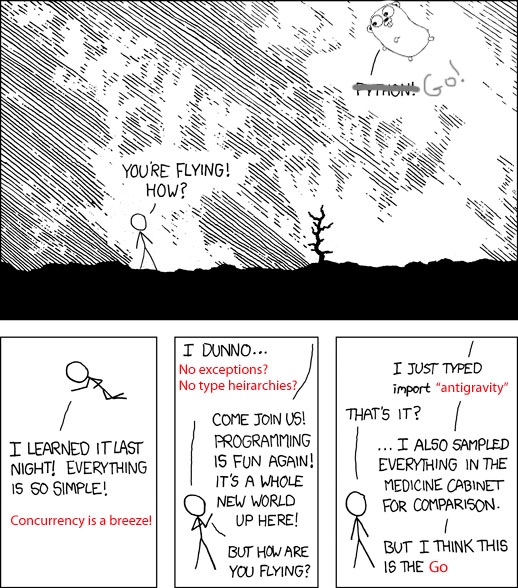 PYTHON! Go!
YOU'RE FLYING!
HOW?
I LEARNED IT LAST
NIGHT! EVERYTHING
IS SO SIMPLE!
Concurrency is a breeze!
I DUNNO...
No exceptions?
No type heirarchies?
COME JOIN US!
PROGRAMMING
IS FUN AGAIN!
IT'S A WHOLE
NEW WORLD
UP HERE!
BUT HOW ARE
YOU FLYING?
I JUST TYPED
import "antigravity"
THAT'S IT?
... I ALSO SAMPLED
EVERYTHING IN THE
MEDICINE CABINET
FOR COMPARISON.
BUT I THINK THIS
IS THE Go